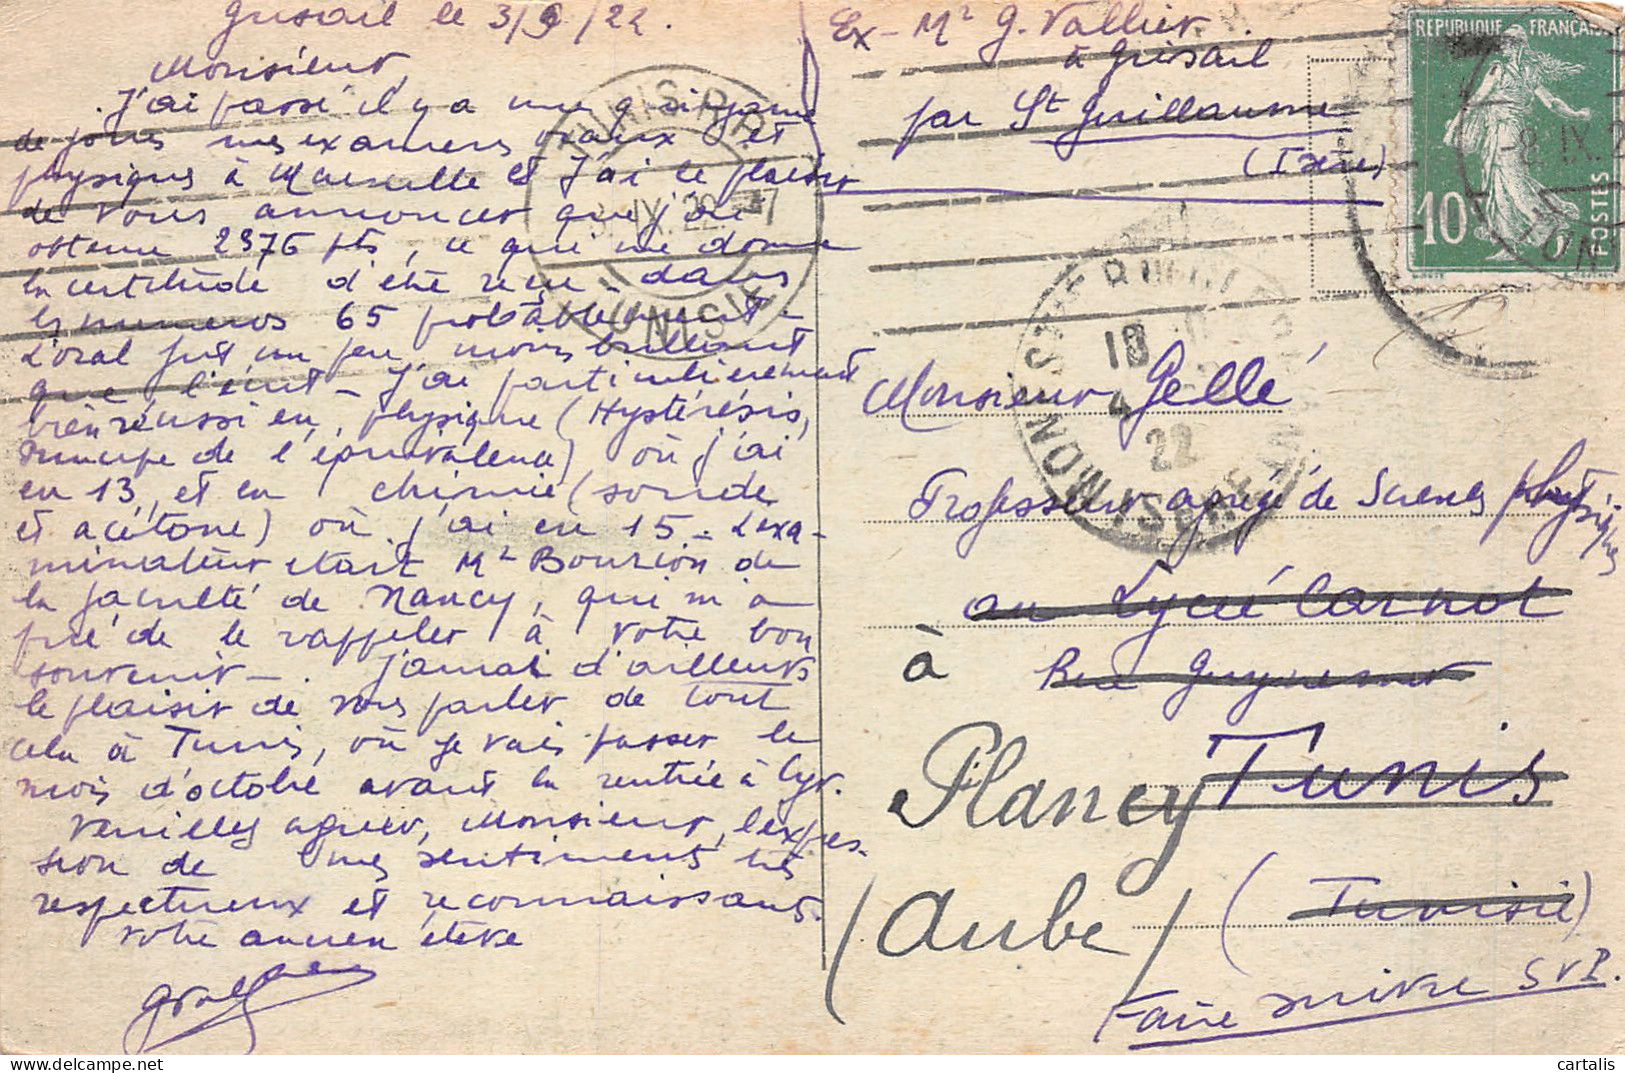 Grisail le 3/9/22.
Monsieur,
J'ai passé il y a une quinzaine
de jours mes examens oraux et
physiques à Marseille et j'ai le plaisir
de vous annoncer que j'ai
obtenu 2376 pts, ce qui me donne
la certitude d'être reçu - dans
les numéros 65 probablement -
L'oral fut un peu moins brillant
que l'écrit - J'ai particulièrement
bien réussi en physique (Hystérésis,
Principe de l'équivalence) où j'ai
eu 13, et en chimie (soude
et acétone) où j'ai eu 15 - L'exa-
minateur était Mr Bourion de
la faculté de Nancy, qui m'a
prié de le rappeler à votre bon
souvenir - J'aurai d'ailleurs
le plaisir de vous parler de tout
cela à Tunis, où je vais passer le
mois d'octobre avant la rentrée à Lyr.
Veuillez agréer, Monsieur, l'expres-
sion de mes sentiments très
respectueux et reconnaissants
votre ancien élève
Ex - Mr G. Vallier
à Grisail
par St Guillaume
(Isère)
RÉPUBLIQUE FRANÇAISE
10
POSTES
TUNIS R.P.
IX. 22
TUNISIE
22
Monsieur Gellé
Professeur agrégé de Sciences physiques
au Lycée Carnot
à Rue Guynemer
Plancy Tunis
(Aube) (Tunisie)
Faire suivre SVP.
cartalis.com